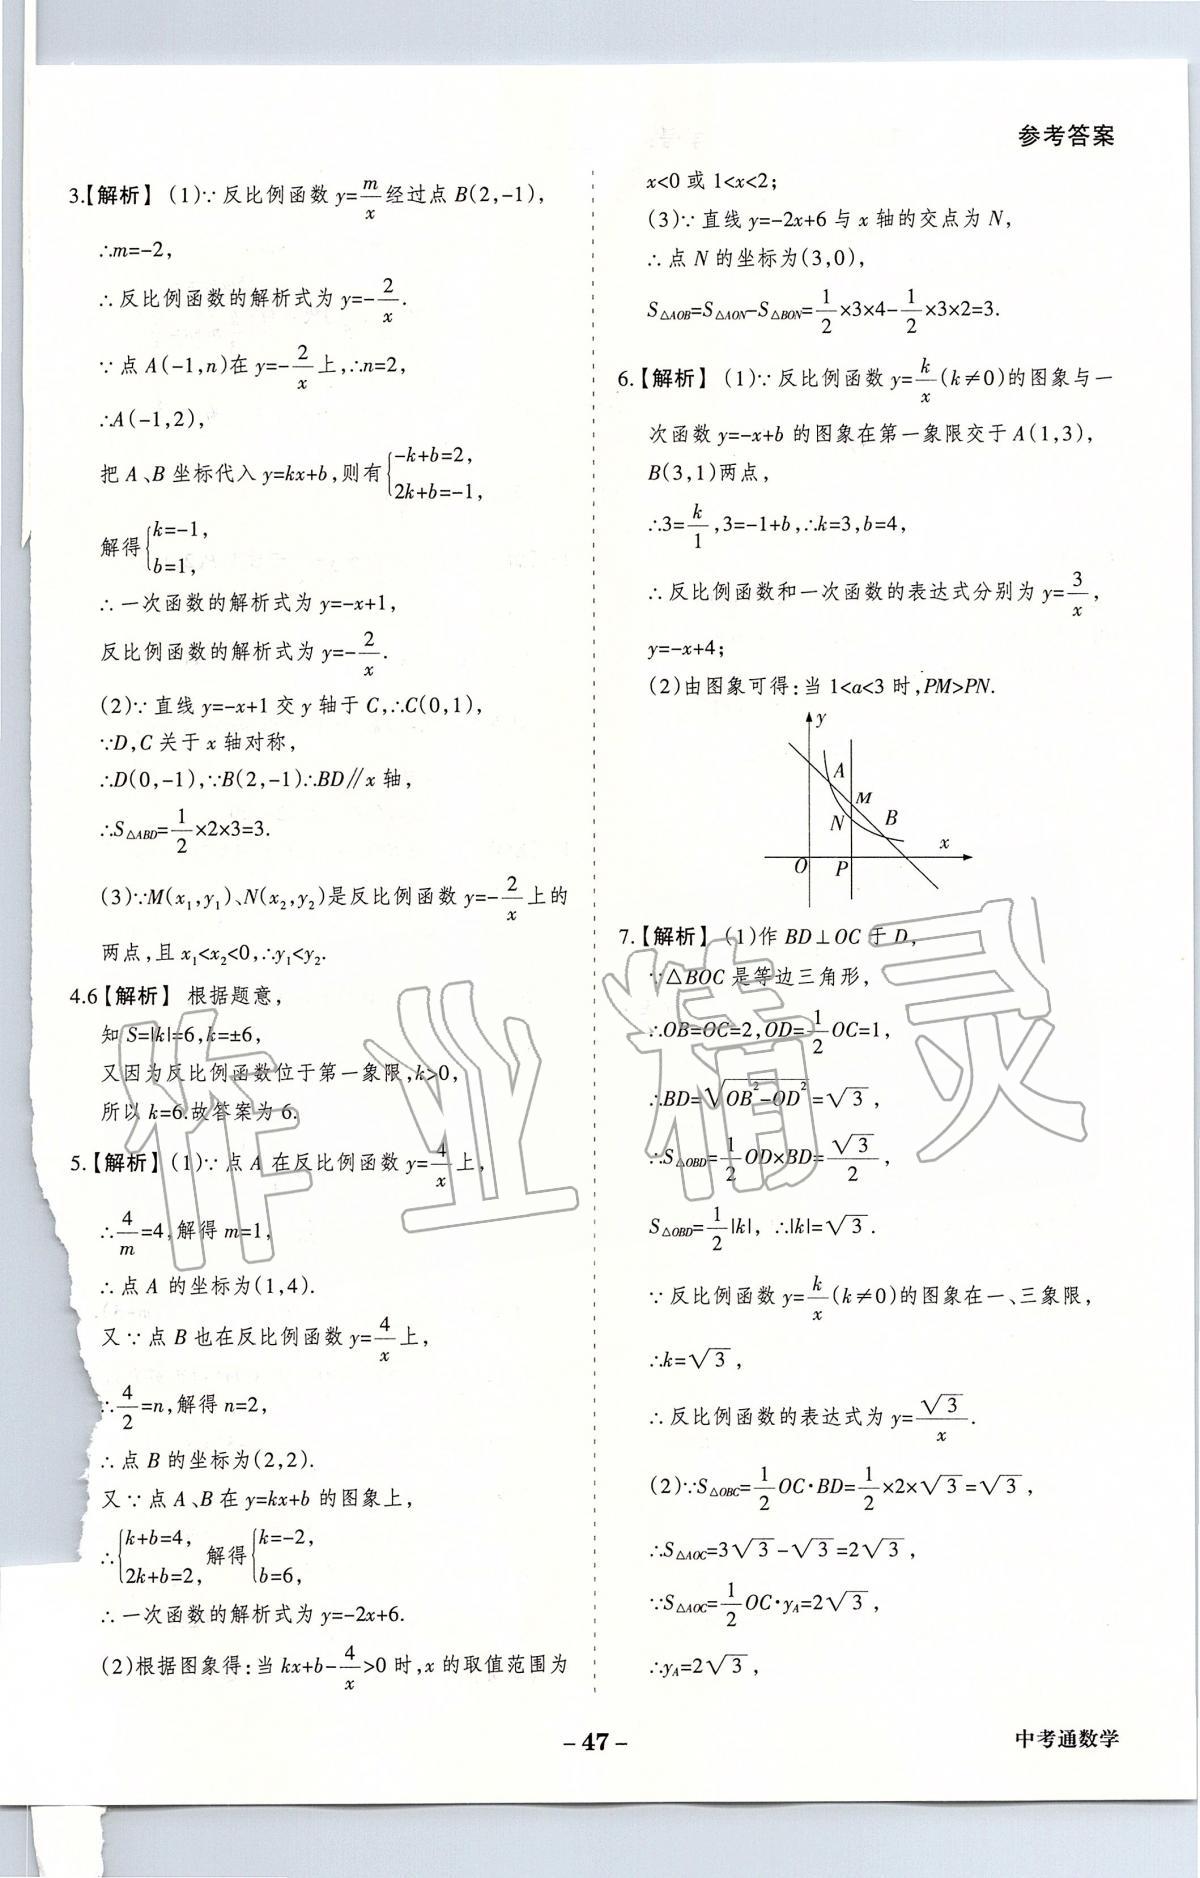 参考答案
3.【解析】(1)∵反比例函数 y=m/x 经过点 B(2,-1),
∴m=-2,
∴反比例函数的解析式为 y=-2/x.
∵点 A(-1,n)在 y=-2/x 上,∴n=2,
∴A(-1,2),
把 A、B 坐标代入 y=kx+b,则有{-k+b=2, 2k+b=-1,
解得{k=-1, b=1,
∴一次函数的解析式为 y=-x+1,
反比例函数的解析式为 y=-2/x.
(2)∵直线 y=-x+1 交 y 轴于 C,∴C(0,1),
∵D,C 关于 x 轴对称,
∴D(0,-1),∵B(2,-1)∴BD∥x 轴,
∴S△ABD=1/2×2×3=3.
(3)∵M(x₁,y₁)、N(x₂,y₂)是反比例函数 y=-2/x 上的
两点,且 x₁<x₂<0,∴y₁<y₂.
4.6【解析】根据题意,
知 S=|k|=6,k=±6,
又因为反比例函数位于第一象限,k>0,
所以 k=6.故答案为 6.
5.【解析】(1)∵点 A 在反比例函数 y=4/x 上,
∴4/m=4,解得 m=1,
∴点 A 的坐标为(1,4).
又∵点 B 也在反比例函数 y=4/x 上,
∴4/2=n,解得 n=2,
∴点 B 的坐标为(2,2).
又∵点 A、B 在 y=kx+b 的图象上,
∴{k+b=4, 2k+b=2, 解得{k=-2, b=6,
∴一次函数的解析式为 y=-2x+6.
(2)根据图象得:当 kx+b-4/x>0 时,x 的取值范围为
x<0 或 1<x<2;
(3)∵直线 y=-2x+6 与 x 轴的交点为 N,
∴点 N 的坐标为(3,0),
S△AOB=S△AON-S△BON=1/2×3×4-1/2×3×2=3.
6.【解析】(1)∵反比例函数 y=k/x(k≠0)的图象与一
次函数 y=-x+b 的图象在第一象限交于 A(1,3),
B(3,1)两点,
∴3=k/1,3=-1+b,∴k=3,b=4,
∴反比例函数和一次函数的表达式分别为 y=3/x,
y=-x+4;
(2)由图象可得:当 1<a<3 时,PM>PN.
y
A
M
N
B
x
O
P
7.【解析】(1)作 BD⊥OC 于 D,
∵△BOC 是等边三角形,
∴OB=OC=2,OD=1/2OC=1,
∴BD=√(OB²-OD²)=√3,
∴S△OBD=1/2OD×BD=√3/2,
S△OBD=1/2|k|,∴|k|=√3.
∵反比例函数 y=k/x(k≠0)的图象在一、三象限,
∴k=√3,
∴反比例函数的表达式为 y=√3/x.
(2)∵S△OBC=1/2OC·BD=1/2×2×√3=√3,
∴S△AOC=3√3-√3=2√3,
∵S△AOC=1/2OC·yA=2√3,
∴yA=2√3,
作业精灵
-47-
中考通数学